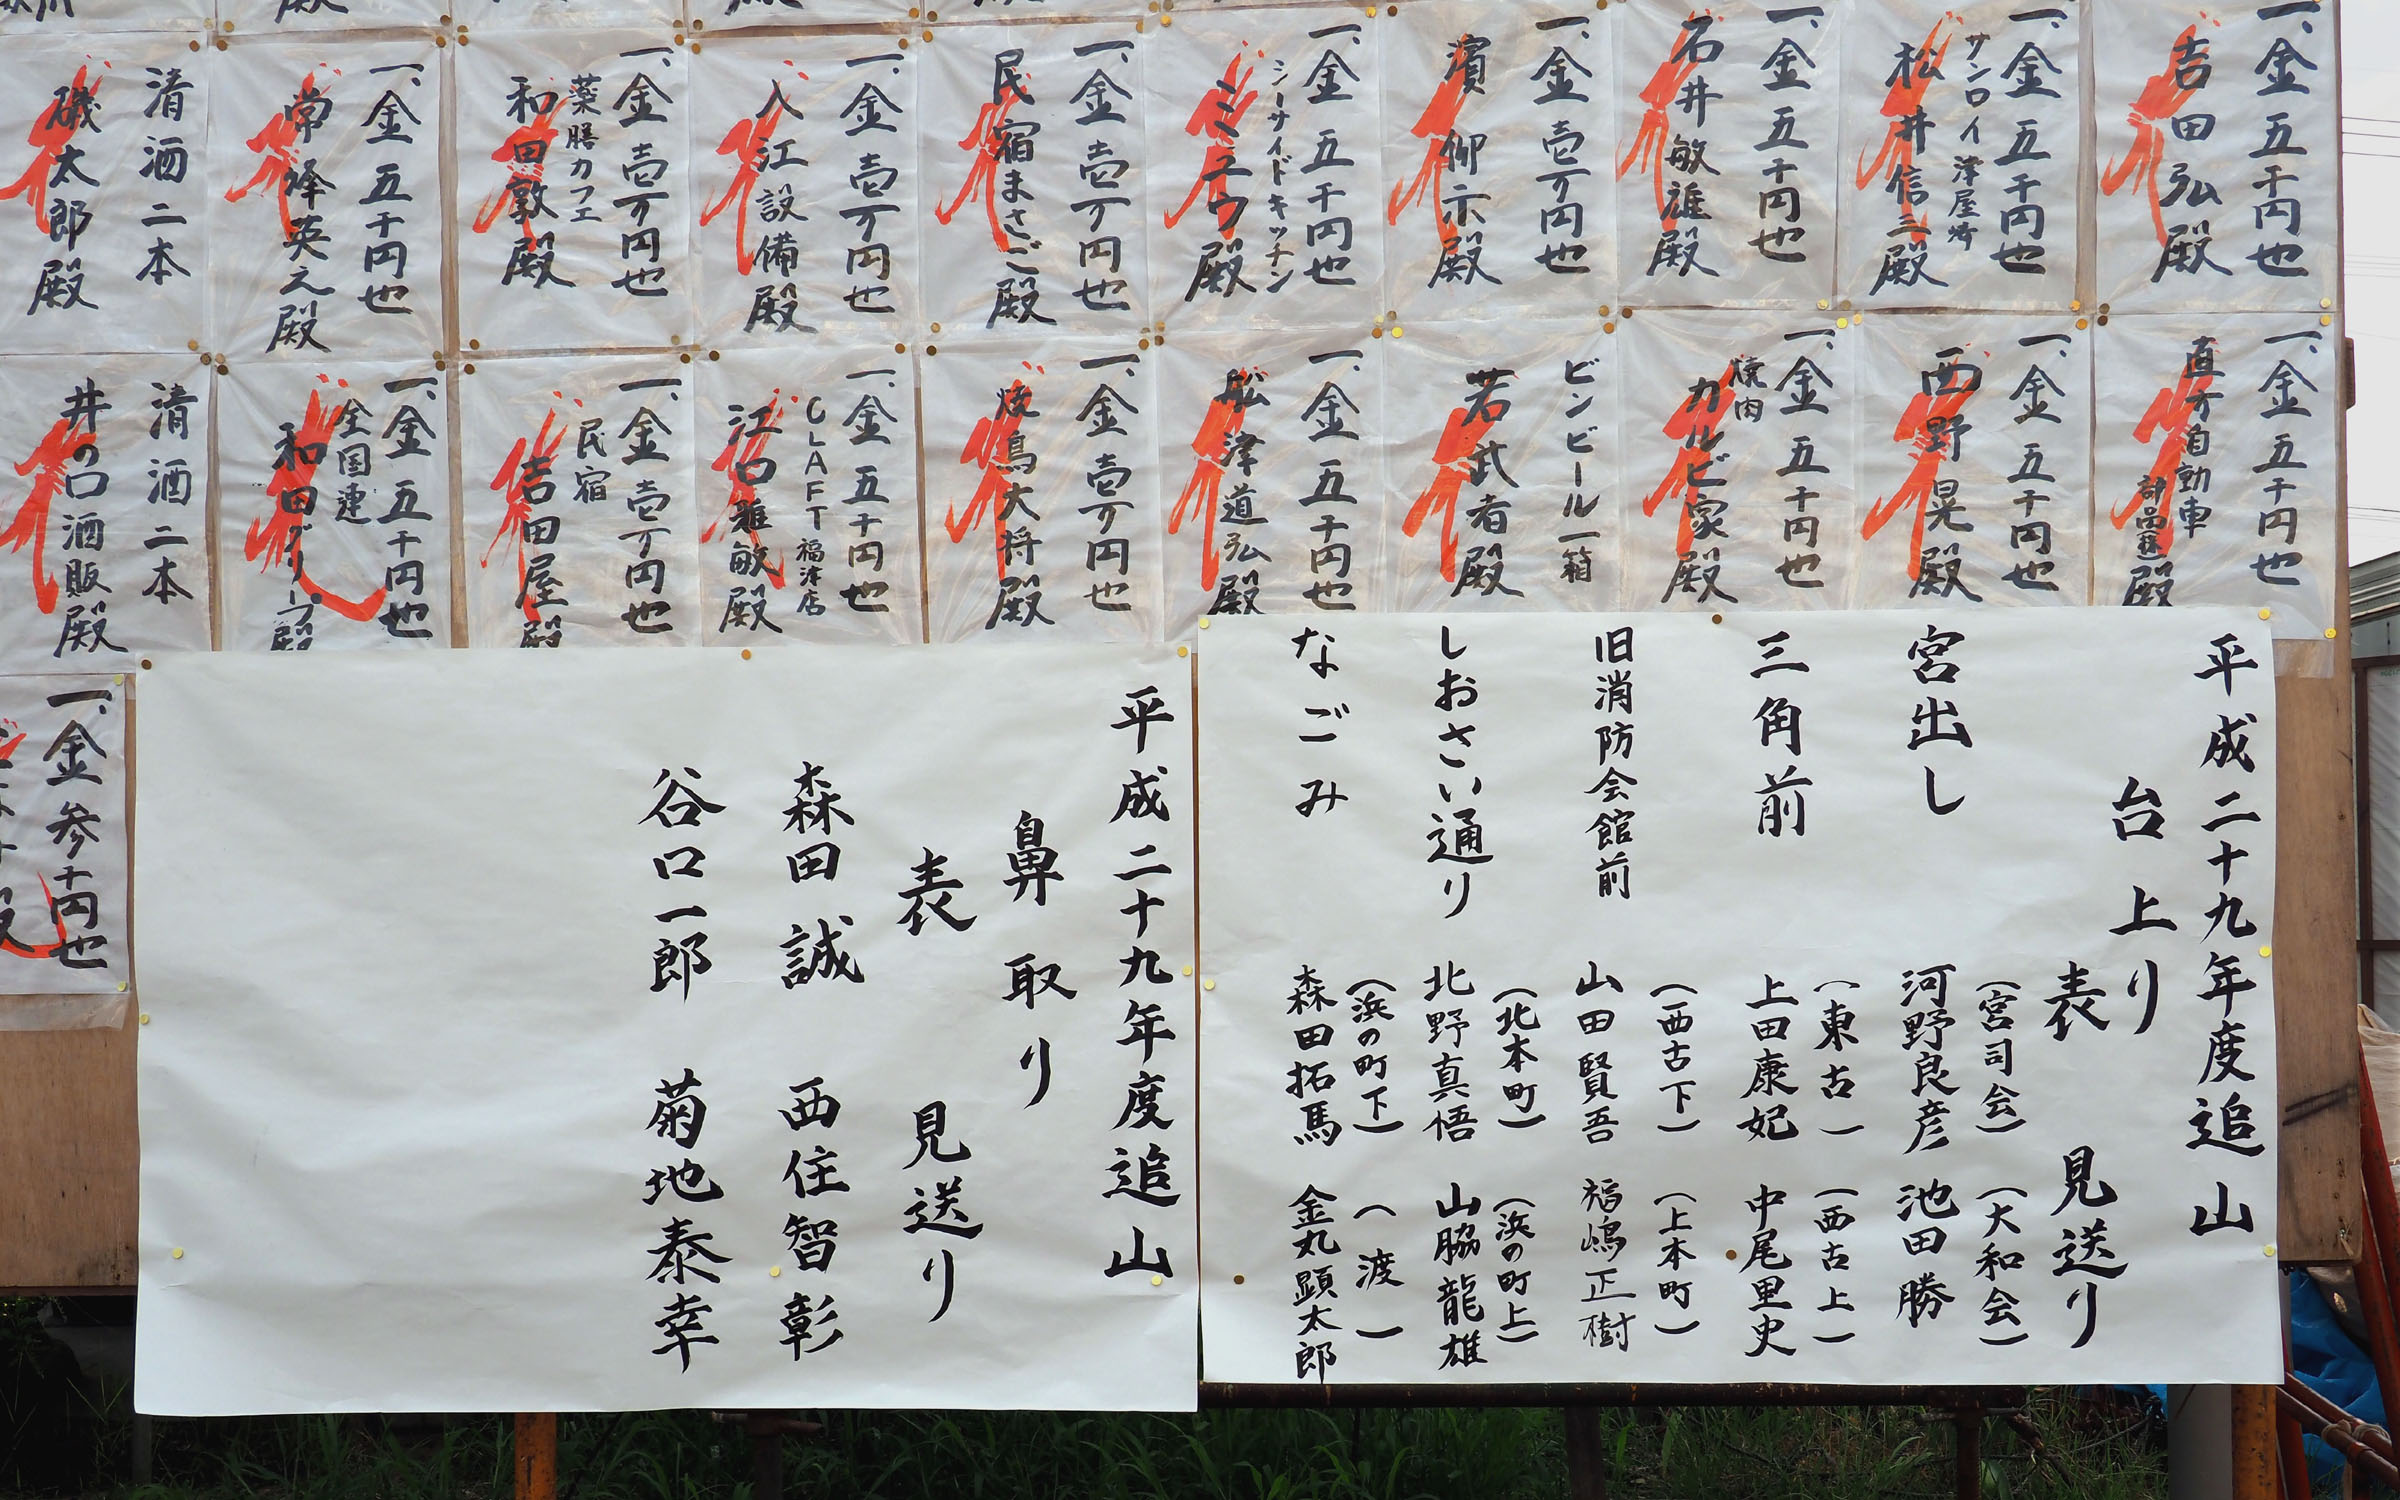 一、金五千円也
吉田弘殿
一、金五千円也
サンロイ津屋崎
松井信三殿
一、金五千円也
石井敏雄殿
一、金壱万円也
濱仰示殿
一、金五千円也
シーサイドキッチン
ミミユウ殿
一、金壱万円也
民宿まさご殿
一、金壱万円也
入江設備殿
一、金壱万円也
薬膳カフェ
和田敦殿
一、金五千円也
英之殿
清酒二本
磯太郎殿
一、金五千円也
直方自動車
殿
一、金五千円也
西野晃殿
一、金五千円也
焼肉
カルビ家殿
ビンビール一箱
若武者殿
一、金五千円也
船津道弘殿
一、金壱万円也
焼鳥大将殿
一、金五千円也
CLAFT福津店
江口雅敏殿
一、金壱万円也
民宿
吉田屋殿
一、金五千円也
全国連
和田グリープ殿
清酒二本
井の口酒販殿
一、金参千円也
平成二十九年度追山
台上り
表 見送り
宮出し
(宮司会) (大和会)
河野良彦 池田勝
三角前
(東古) (西古上)
上田康妃 中尾里史
旧消防会館前
(西古下) (上本町)
山田賢吾 福嶋正樹
しおさい通り
(北本町) (浜の町上)
北野真悟 山脇龍雄
なごみ
(浜の町下) (渡)
森田拓馬 金丸顕太郎
平成二十九年度追山
鼻取り
表 見送り
森田誠 西住智彰
谷口一郎 菊地泰幸